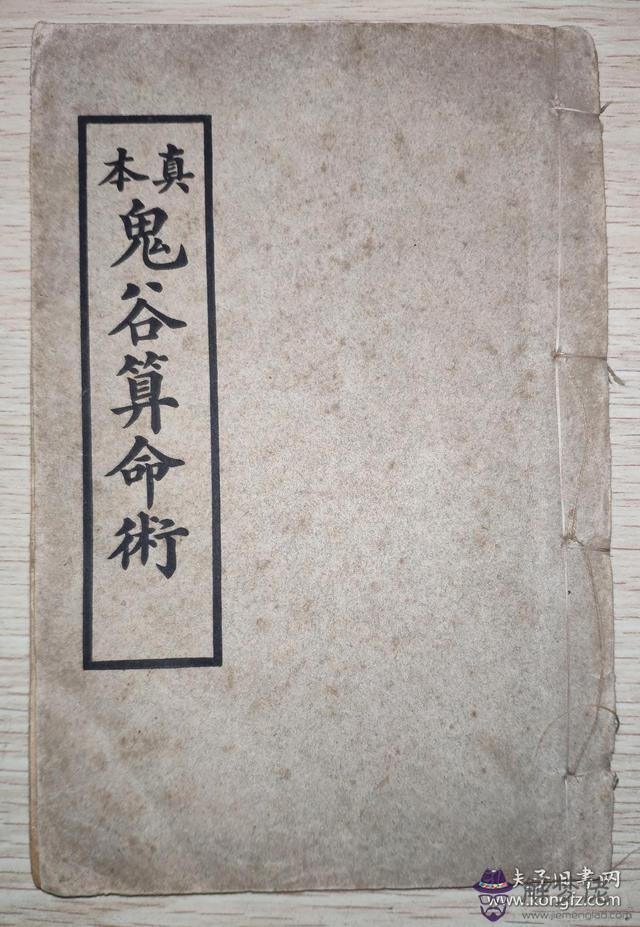 真本
鬼谷算命術
夫子旧書网
www.kongfz.com
www.jiemenglao.com